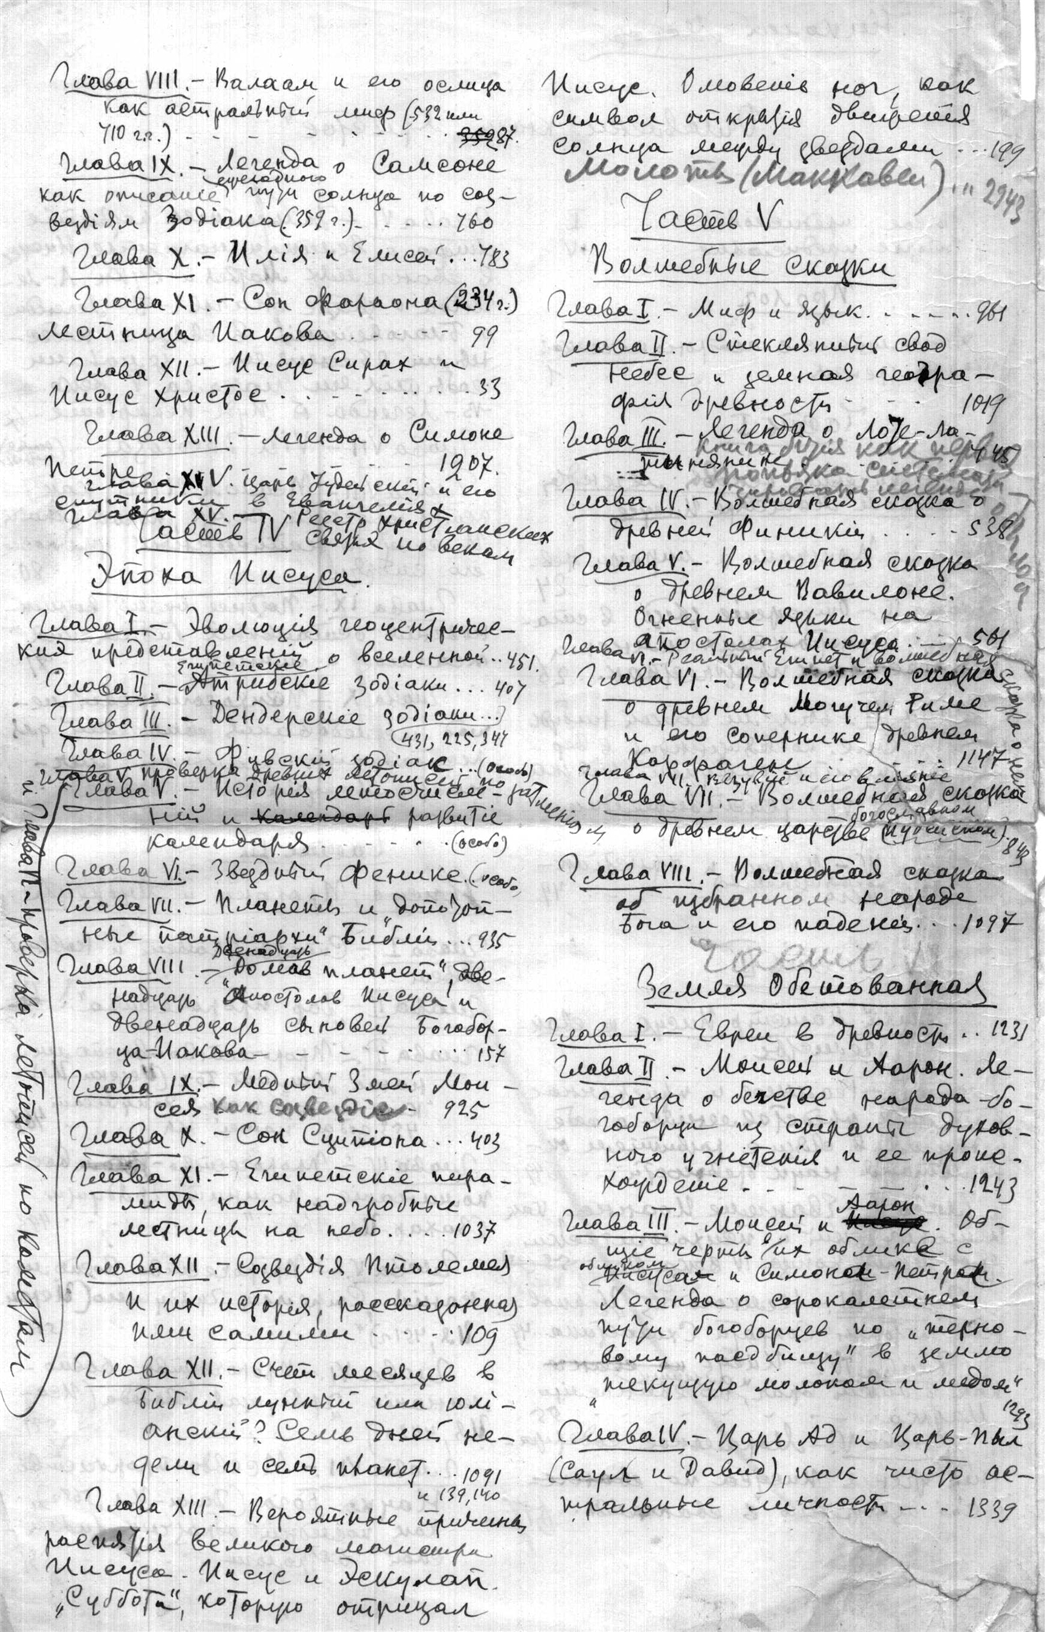 Глава VIII. – Валаам и его ослица
как астральный миф (532 или
710 г.г.) - - - - - 87.
Глава IX. – Легенда о Самсоне
ежегодного
как описание пути солнца по соз-
вездiям Зодiака (359 г.) - . . . . 760
Глава X. – Илiя и Елисей ... 783
Глава XI. – Сон фараона (234 г.)
Лестница Иакова . - . . . . 99
Глава XII. – Иисус Сирах и
Иисус Христос . - - - - - . . 33
Глава XIII. – Легенда о Симоне
Петре . - . . . . . 1907.
Глава XIV. Царь Iудейский и его
спутники в Евангелiях
Глава XV. – Реестр христианских
связя по векам
Часть IV
Эпоха Иисуса.
Глава I. – Эволюцiя геоцентричес-
ких представленiй о вселенной .. 451.
Египетские
Глава II. – Атрибскiе зодiаки ... 407
Глава III. – Дендерскiе зодiаки ...
(431, 225, 347
Глава IV. – Фивскiй зодiак .. (особо)
Глава V. проверка древних летописей по затменiям
Глава V. – Исторiя летосчисле-
нiй и календарь развитiе
календаря . - . . . . (особо)
и Глава VI – проверка летописей по кометам
Глава VI. – Звездный Феникс. (особо)
Глава VII. – Планеты и „допотоп-
ные патрiархи" Библiи ... 935
Двенадцать
Глава VIII. – „Домов планет", две-
надцать „Апостолов Иисуса" и
двенадцать сыновей Богобор-
ца-Иакова - - - - - ... 157
Глава IX. – Медный Змей Мои-
сея как созвездiе - 925
Глава X. – Сон Сципiона ... 403
Глава XI. – Египетскiе пира-
миды, как надгробные
лестницы на небо. . . . 1037
Глава XII. – Созвездiя Птолемея
и их исторiя, рассказанная
ими самими . . . . 109
Глава XII. – Счет месяцев в
Библiи лунный или юлi-
анский? Семь дней не-
дели и семь планет. . . 1091
и 139, 140
Глава XIII. – Вероятные причины
распятiя великого магистра
Иисуса. Иисус и Эскулап.
„Суббота", которую отрицал
Иисус. Омовенiе ног, как
символ открытiя движенiя
солнца между звездами ... 199
Молоты (Маккавеи) ... 2943
Часть V
Волшебные сказки
Глава I. – Миф и язык. . - . . . 961
Глава II. – Стеклянный свод
небес и земная геогра-
фiя древности - - - 1019
Глава III. – Легенда о Лозе-Ла-
тынянине
Глава IV. – Волшебная сказка о
древней Финикiи . . . . - 538
Глава V. – Волшебная сказка
о древнем Вавилоне.
Огненные языки на
апостолах Иисуса . . . . 501
Глава VI. – Реальный Египет и волшебная
сказка о нем
Глава VI. – Волшебная сказка
о древнем Могучем Риме
и его сопернике древнем
Карфагене . . . . 1147
Глава VII. Везувий и его влiянiе
Глава VII. – Волшебная сказка
богославном
о древнем царстве (Iудейском). 849
Глава VIII. – Волшебная сказка
об избранном народе
Бога и его паденiи . . . 1097
Часть
Земля Обетованная
Глава I. – Евреи в древности .. 1231
Глава II. – Моисей и Аарон. Ле-
генда о бегстве народа-бо-
гоборца из страны духов-
ного угнетенiя и ее проис-
хожденiе - - - - . . . 1243
Аарон
Глава III. – Моисей и Иисус. Об-
щiе черты их облике с
обликом
Иисуса и Симона-Петра.
Легенда о сорокалетнем
пути богоборцев по „терно-
вому пастбищу" в землю
„текущую молоком и медом"
1293
Глава IV. – Царь Ад и Царь-Пыл
(Саул и Давид), как чисто ас-
тральные личности - - . 1339